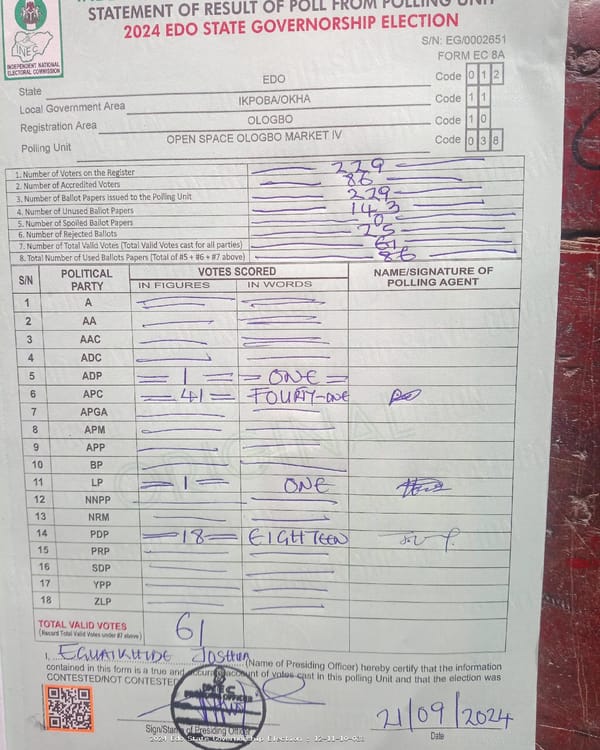 STATEMENT OF RESULT OF POLL FROM POLLING UNIT
2024 EDO STATE GOVERNORSHIP ELECTION
INEC
INDEPENDENT NATIONAL
ELECTORAL COMMISSION
S/N: EG/0002651
FORM EC 8A
State EDO Code 0 1 2
Local Government Area IKPOBA/OKHA Code 1 1
Registration Area OLOGBO Code 1 0
Polling Unit OPEN SPACE OLOGBO MARKET IV Code 0 3 8
1. Number of Voters on the Register 229
2. Number of Accredited Voters 86
3. Number of Ballot Papers Issued to the Polling Unit 229
4. Number of Unused Ballot Papers 143
5. Number of Spoiled Ballot Papers 0
6. Number of Rejected Ballots 25
7. Number of Total Valid Votes (Total Valid Votes cast for all parties) 61
8. Total Number of Used Ballots Papers (Total of #5 + #6 + #7 above) 86
S/N POLITICAL PARTY VOTES SCORED NAME/SIGNATURE OF POLLING AGENT
IN FIGURES IN WORDS
1 A
2 AA
3 AAC
4 ADC
5 ADP 1 ONE
6 APC 41 FOURTY-ONE
7 APGA
8 APM
9 APP
10 BP
11 LP 1 ONE
12 NNPP
13 NRM
14 PDP 18 EIGHTEEN
15 PRP
16 SDP
17 YPP
18 ZLP
ORIGINAL
TOTAL VALID VOTES 61
(Record Total Valid Votes under #7 above)
I, EGUAIKHIDE JOSHUA (Name of Presiding Officer) hereby certify that the information
contained in this form is a true and accurate account of votes cast in this polling Unit and that the election was
CONTESTED/NOT CONTESTED
INEC
21/09/2024
Sign/Stamp of Presiding Officer Date
2024 Edo State Governorship Election